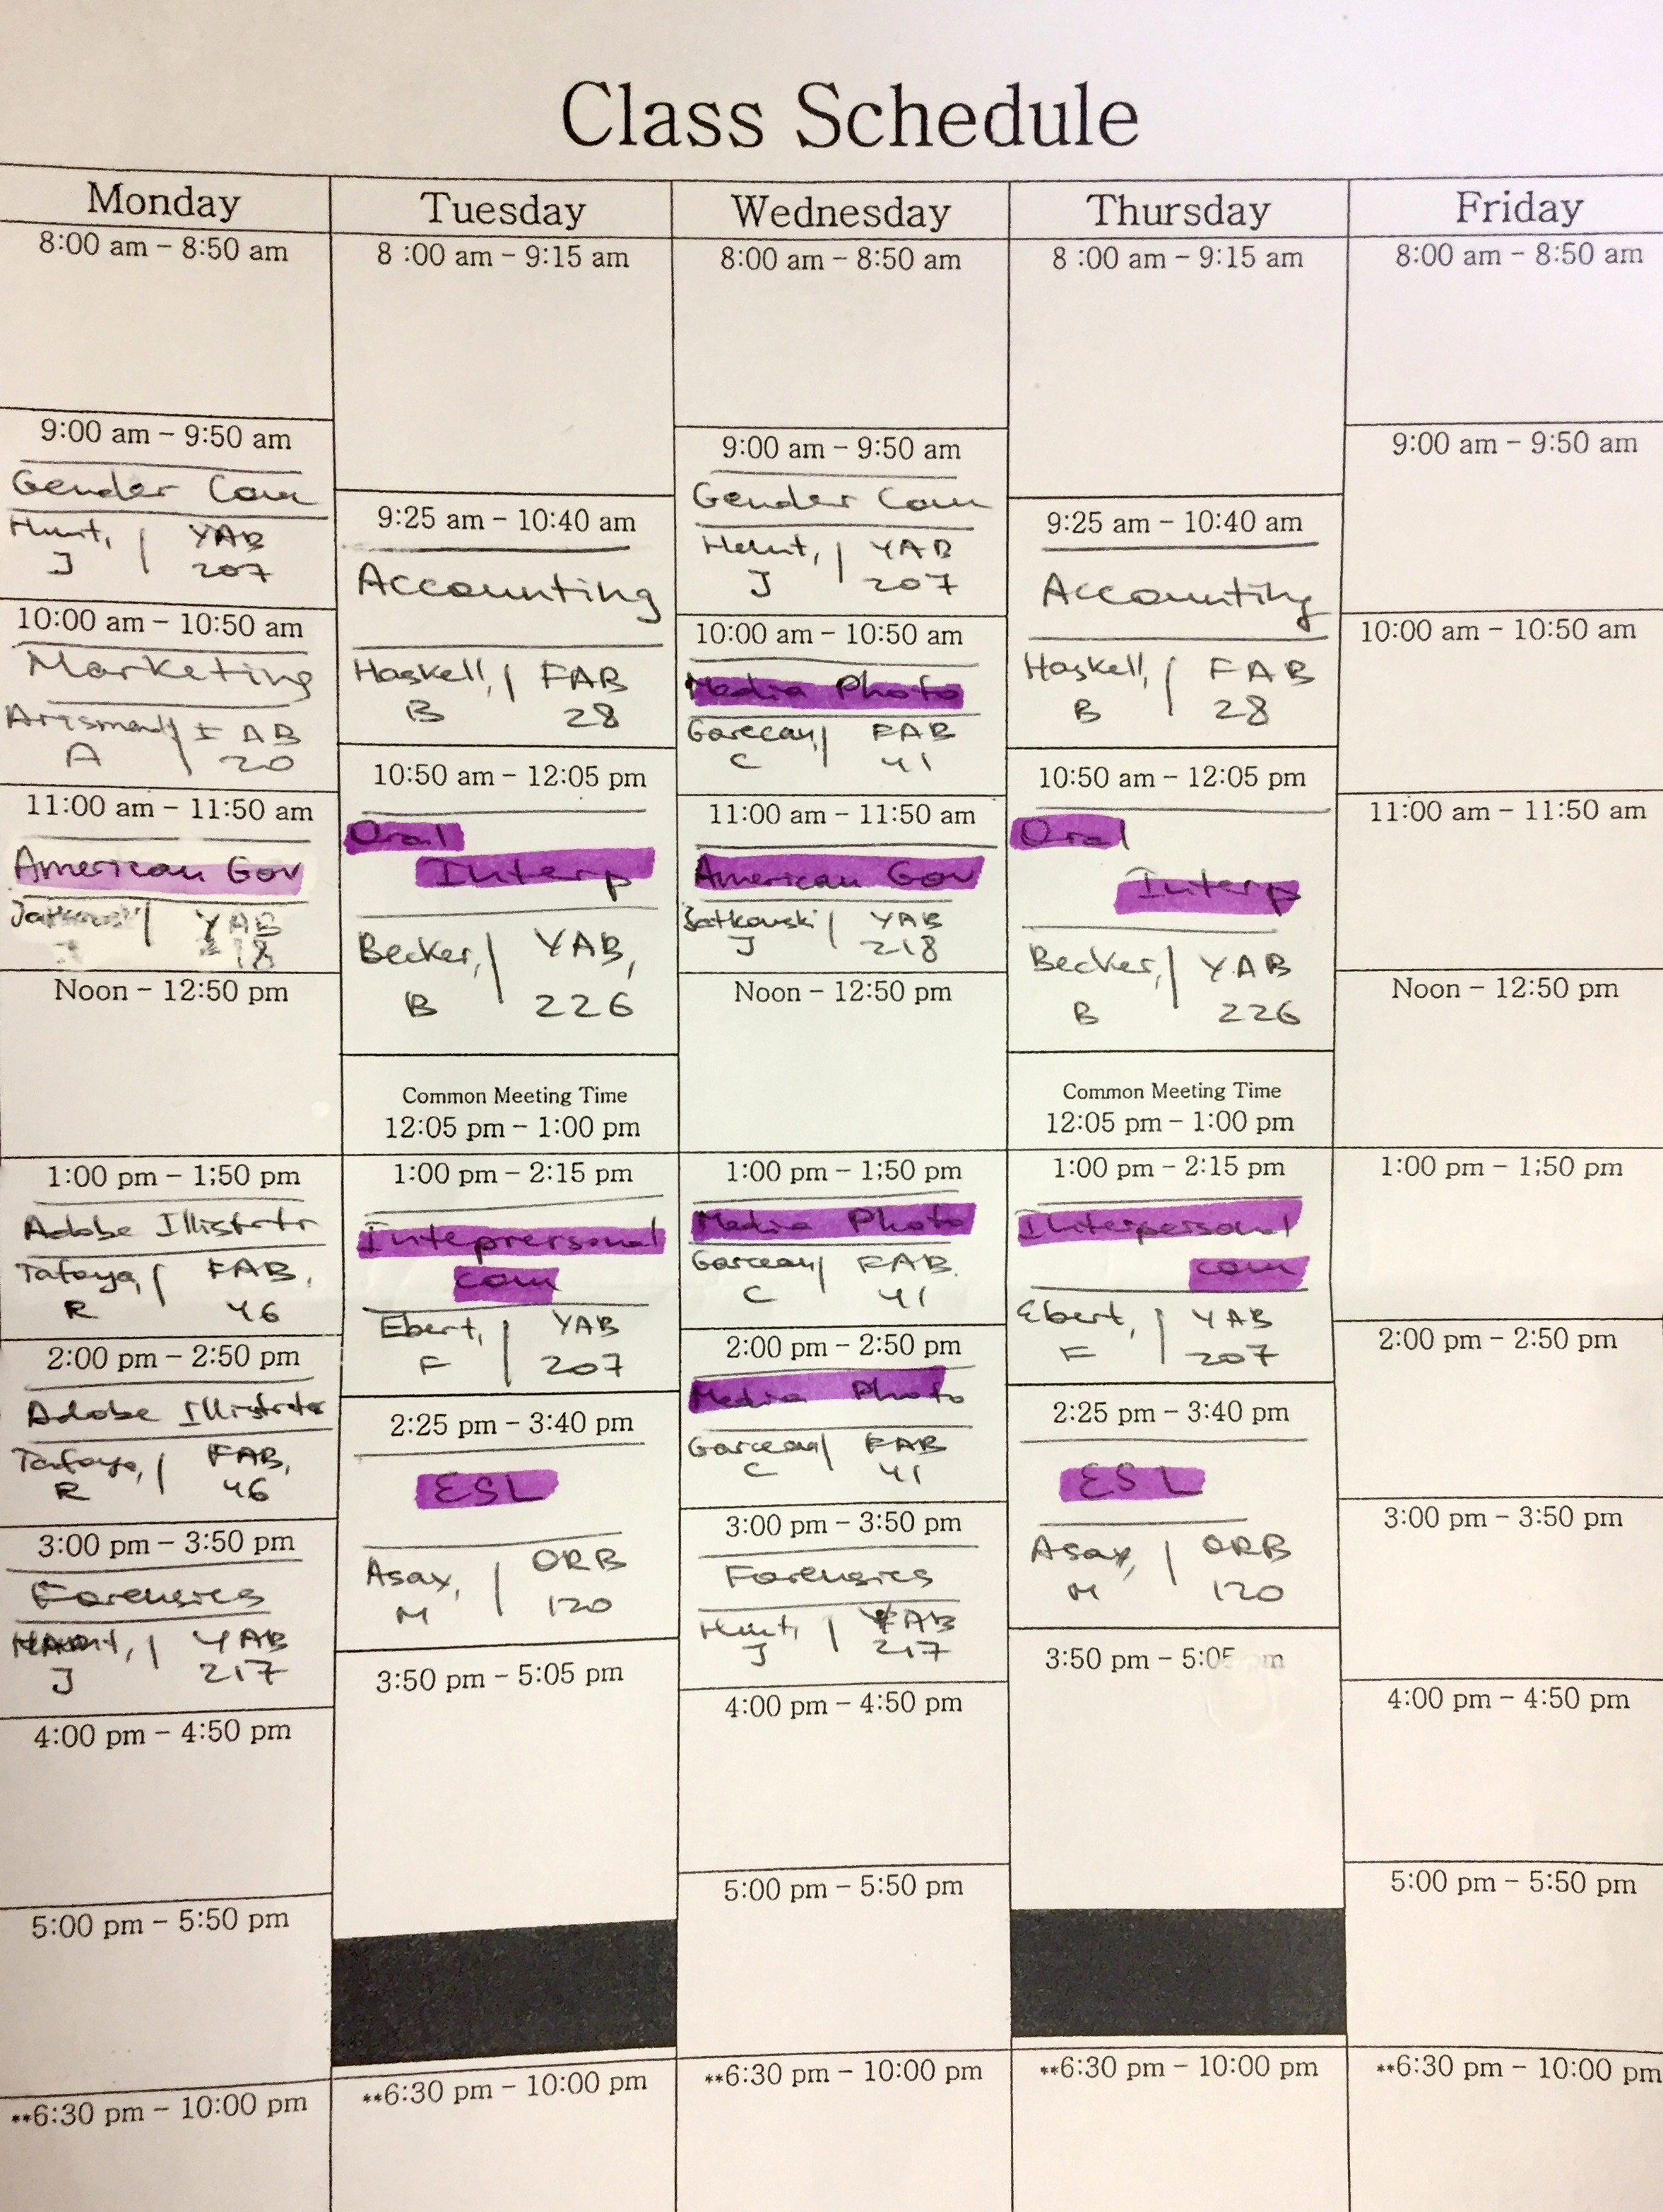 Class Schedule
Monday
8:00 am – 8:50 am
9:00 am – 9:50 am
Gender Com
Hunt, | YAB
J 207
10:00 am – 10:50 am
Marketing
AB
A 20
11:00 am – 11:50 am
American Gov
YAB
218
Noon – 12:50 pm
1:00 pm – 1;50 pm
Adobe Illistrtr
Tafoya, | FAB,
R 46
2:00 pm – 2:50 pm
Adobe Illistrator
Tafoya, | FAB,
R 46
3:00 pm – 3:50 pm
Forensics
Hunt, | YAB
J 217
4:00 pm – 4:50 pm
5:00 pm – 5:50 pm
**6:30 pm – 10:00 pm
Tuesday
8 :00 am – 9:15 am
9:25 am – 10:40 am
Accounting
Haskell, | FAB
B 28
10:50 am – 12:05 pm
Oral
Interp
Becker, | YAB,
B 226
Common Meeting Time
12:05 pm – 1:00 pm
1:00 pm – 2:15 pm
Inteprersonal
com
Ebert, | YAB
F 207
2:25 pm – 3:40 pm
ESL
Asay, | ORB
M 120
3:50 pm – 5:05 pm
**6:30 pm – 10:00 pm
Wednesday
8:00 am – 8:50 am
9:00 am – 9:50 am
Gender Com
Hunt, | YAB
J 207
10:00 am – 10:50 am
Media Photo
Garceau | FAB
C 41
11:00 am – 11:50 am
American Gov
Jatkowski | YAB
J 218
Noon – 12:50 pm
1:00 pm – 1;50 pm
Media Photo
Garceau | FAB
C 41
2:00 pm – 2:50 pm
Media Photo
Garceau | FAB
C 41
3:00 pm – 3:50 pm
Forensics
Hunt, | YAB
J 217
4:00 pm – 4:50 pm
5:00 pm – 5:50 pm
**6:30 pm – 10:00 pm
Thursday
8 :00 am – 9:15 am
9:25 am – 10:40 am
Accounting
Haskell, | FAB
B 28
10:50 am – 12:05 pm
Oral
Interp
Becker, | YAB
B 226
Common Meeting Time
12:05 pm – 1:00 pm
1:00 pm – 2:15 pm
Interpersonal
com
Ebert, | YAB
F 207
2:25 pm – 3:40 pm
ESL
Asay, | ORB
M 120
3:50 pm – 5:05 pm
**6:30 pm – 10:00 pm
Friday
8:00 am – 8:50 am
9:00 am – 9:50 am
10:00 am – 10:50 am
11:00 am – 11:50 am
Noon – 12:50 pm
1:00 pm – 1;50 pm
2:00 pm – 2:50 pm
3:00 pm – 3:50 pm
4:00 pm – 4:50 pm
5:00 pm – 5:50 pm
**6:30 pm – 10:00 pm